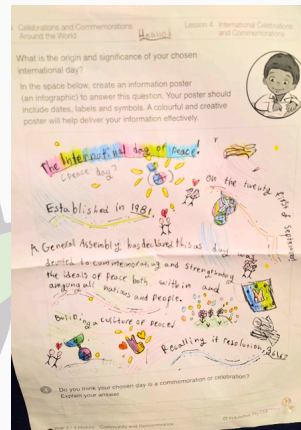 Celebrations and Commemorations
Around the World
Lesson 4 International Celebrations
and Commemorations
What is the origin and significance of your chosen
international day?
In the space below, create an information poster
(an infographic) to answer this question. Your poster should
include dates, labels and symbols. A colourful and creative
poster will help deliver your information effectively.
The International day of Peace!
(peace day)
on the twenty first of September
Established in 1981.
A General Assembly has declared this as day
devoted to commemorating and strengthening
the ideals of peace both within and
among all nations and people.
Building a culture of peace!
Recalling it resolution
Do you think your chosen day is a commemoration or celebration?
Explain your answer.